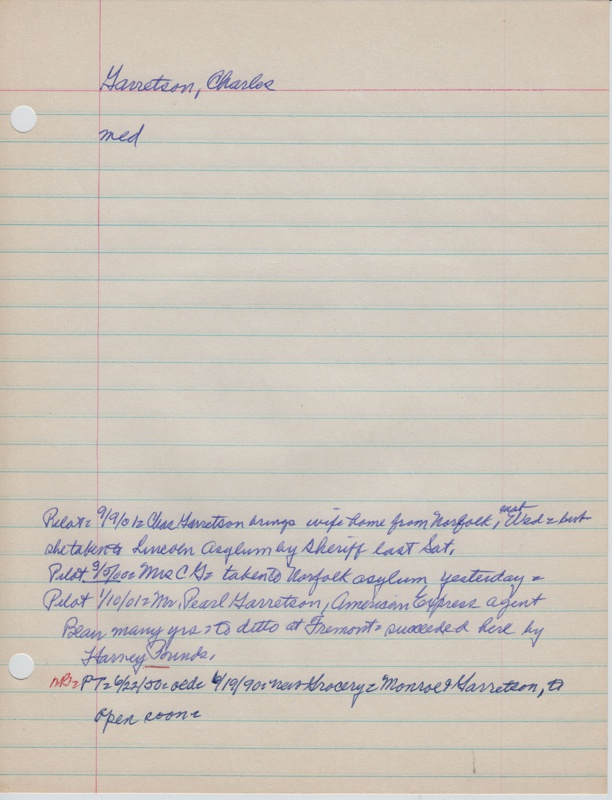 Garretson, Charles
med
Pilot= 9/9/01= Chas Garretson brings wife home from Norfolk, last Wed = but
she taken to Lincoln Asylum by Sheriff last Sat.
Pilot 9/5/00= Mrs C G= taken to Norfolk asylum yesterday=
Pilot 1/10/01= Mr. Pearl Garretson, American Express agent
Blair many yrs= to ditto at Fremont= succeeded here by
Harvey Pounds.
NB= PT= 6/22/50= 6/19/90= new Grocery= Monroe & Garretson, to
open soon=